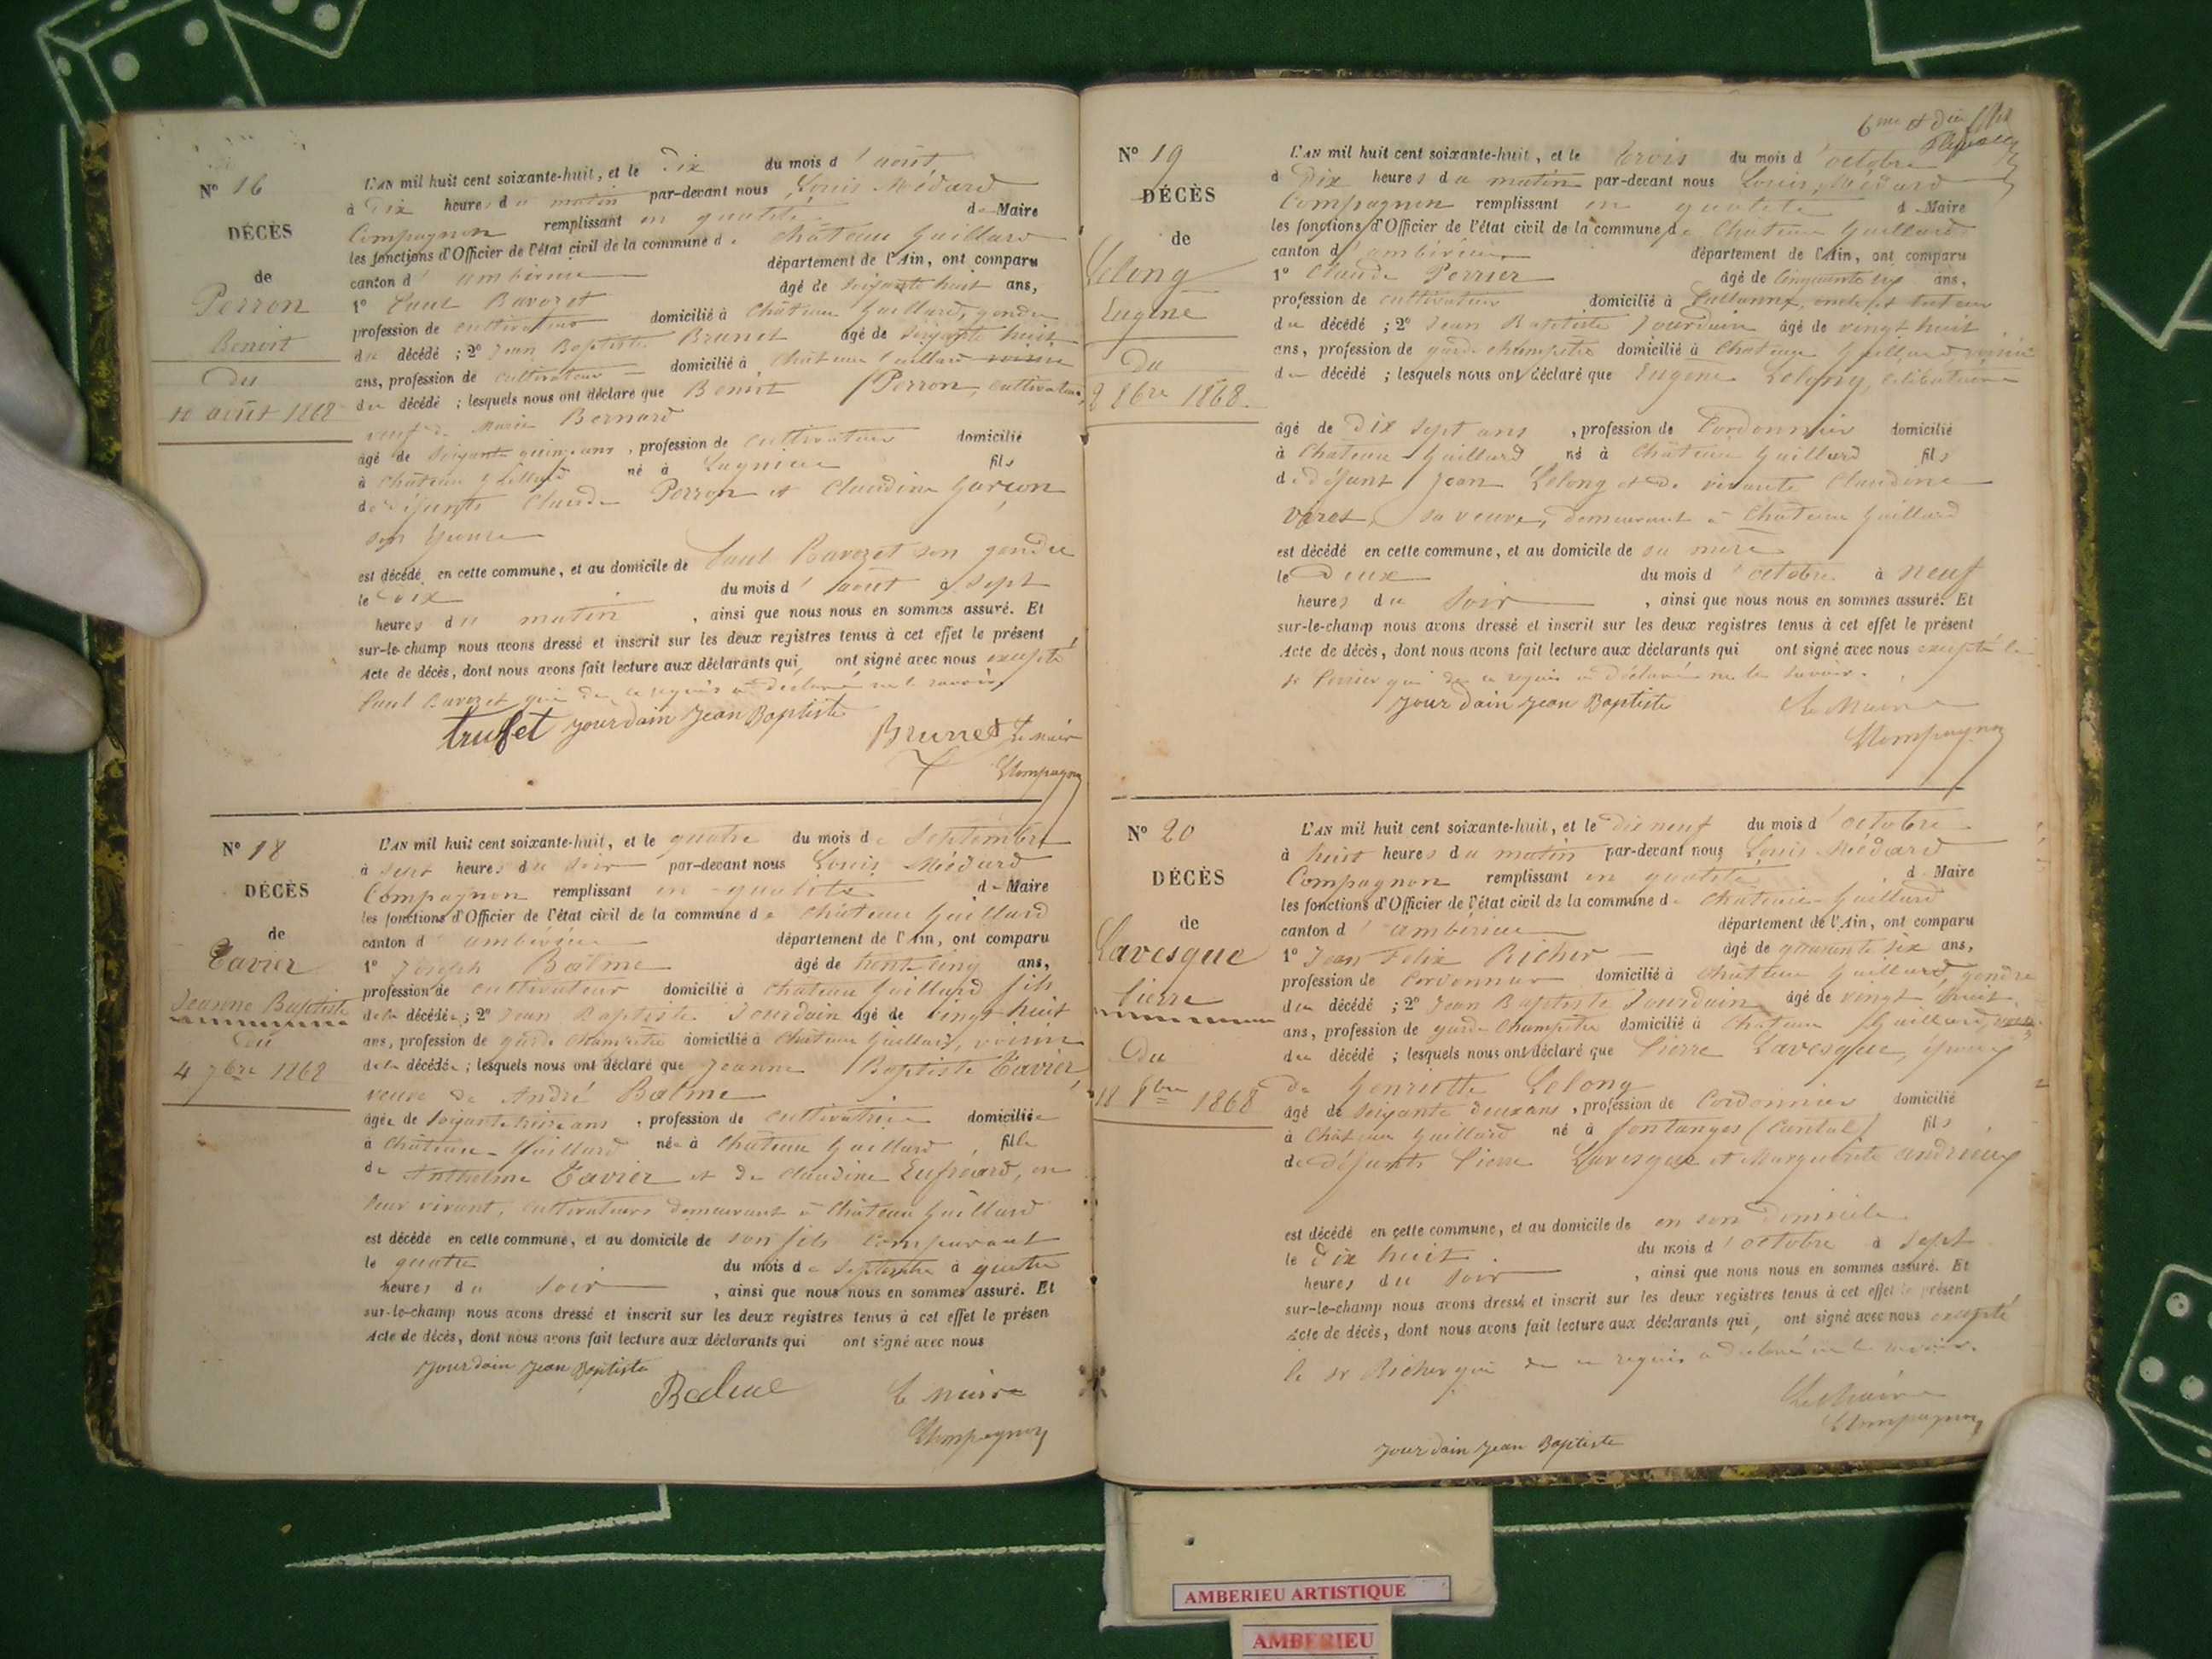 N° 16
DÉCÈS
de
Perron
Benoit
du
10 août 1868
L'AN mil huit cent soixante-huit, et le Dix du mois d'août
à Dix heures du matin par-devant nous Louis Médard
Compagnon remplissant en qualité de Maire
les fonctions d'Officier de l'état civil de la commune de Château Gaillard
canton d'ambérieu département de l'Ain, ont comparu
1° Paul Ravozet âgé de soixante huit ans,
profession de cultivateur domicilié à Château Gaillard, gendre
du décédé ; 2° Jean Baptiste Brunet âgé de soixante huit
ans, profession de cultivateur domicilié à Château Gaillard voisin
du décédé ; lesquels nous ont déclaré que Benoit Perron, cultivateur,
veuf de Marie Bernard
âgé de soixante quinze ans, profession de cultivateur domicilié
à Château Gaillard né à Lagnieu fils
de défunts Claude Perron et Claudine Garçon
son épouse
est décédé en cette commune, et au domicile de Paul Ravozet son gendre
le Dix du mois d'août à sept
heures du matin, ainsi que nous nous en sommes assuré. Et
sur-le-champ nous avons dressé et inscrit sur les deux registres tenus à cet effet le présent
Acte de décès, dont nous avons fait lecture aux déclarants qui ont signé avec nous excepté
Paul Ravozet qui de ce requis a déclaré ne le savoir
trufet Jourdain Jean Baptiste Brunet Le maire
LCompagnon
N° 18
DÉCÈS
de
Tavier
Jeanne Baptiste
du
4 7bre 1868
L'AN mil huit cent soixante-huit, et le quatre du mois de Septembre
à sept heures du soir par-devant nous Louis Médard
Compagnon remplissant en qualité de Maire
les fonctions d'Officier de l'état civil de la commune de Château Gaillard
canton d'ambérieu département de l'Ain, ont comparu
1° Joseph Balme âgé de trente cinq ans,
profession de cultivateur domicilié à Château Gaillard fils
de la décédée ; 2° Jean Baptiste Jourdain âgé de vingt huit
ans, profession de garde Champêtre domicilié à Château Gaillard, voisin
de la décédée ; lesquels nous ont déclaré que Jeanne Baptiste Tavier,
veuve de André Balme
âgée de soixante treize ans, profession de cultivatrice domiciliée
à Château-Gaillard née à Château Gaillard fille
de Anthelme Tavier et de Claudine Eufréard, en
leur vivant, cultivateurs demeurant à Château Gaillard
est décédé en cette commune, et au domicile de son fils comparant
le quatre du mois de Septembre à quatre
heures du soir, ainsi que nous nous en sommes assuré. Et
sur-le-champ nous avons dressé et inscrit sur les deux registres tenus à cet effet le présen
Acte de décès, dont nous avons fait lecture aux déclarants qui ont signé avec nous
Jourdain Jean Baptiste
Balme Le maire
LCompagnon
6me et
N° 19
DÉCÈS
de
Lelong
Eugène
Du
2 8bre 1868.
L'AN mil huit cent soixante-huit, et le trois du mois d'octobre
à Dix heures du matin par-devant nous Louis, Médard
Compagnon remplissant en qualité de Maire
les fonctions d'Officier de l'état civil de la commune de Château Gaillard
canton d'ambérieu département de l'Ain, ont comparu
1° Claude Perrier âgé de Cinquante six ans,
profession de cultivateur domicilié à oncle et tuteur
du décédé ; 2° Jean Baptiste Jourdain âgé de vingt huit
ans, profession de garde champêtre domicilié à Château Gaillard, voisin
du décédé ; lesquels nous ont déclaré que Eugène Lelong, célibataire
âgé de Dix sept ans, profession de Cordonnier domicilié
à Château Gaillard né à Château Gaillard fils
de défunt Jean Lelong et de vivante Claudine
Varet, sa veuve, demeurant à Château Gaillard
est décédé en cette commune, et au domicile de sa mère
le Deux du mois d'octobre à neuf
heures du soir, ainsi que nous nous en sommes assuré. Et
sur-le-champ nous avons dressé et inscrit sur les deux registres tenus à cet effet le présent
Acte de décès, dont nous avons fait lecture aux déclarants qui ont signé avec nous excepté le
sr Perrier qui de ce requis a déclaré ne le savoir.
Jourdain Jean Baptiste Le Maire
LCompagnon
N° 20
DÉCÈS
de
Lavesque
Pierre
Du
18 8bre 1868
L'AN mil huit cent soixante-huit, et le Dix neuf du mois d'octobre
à huit heures du matin par-devant nous Louis Médard
Compagnon remplissant en qualité de Maire
les fonctions d'Officier de l'état civil de la commune de Château-Gaillard
canton d'ambérieu département de l'Ain, ont comparu
1° Jean Felix Richer âgé de quarante six ans,
profession de Cordonnier domicilié à Château Gaillard gendre
du décédé ; 2° Jean Baptiste Jourdain âgé de vingt huit
ans, profession de garde Champêtre domicilié à Château Gaillard, voisin
du décédé ; lesquels nous ont déclaré que Pierre Lavesque, époux
de Henriette Lelong
âgé de soixante deux ans, profession de Cordonnier domicilié
à Château Gaillard né à fontanges (Cantal) fils
de défunts Pierre Lavesque et Marguerite andrieux
est décédé en cette commune, et au domicile de en son Domicile
le Dix huit du mois d'octobre à sept
heures du soir, ainsi que nous nous en sommes assuré. Et
sur-le-champ nous avons dressé et inscrit sur les deux registres tenus à cet effet le présent
Acte de décès, dont nous avons fait lecture aux déclarants qui, ont signé avec nous excepté
le sr Richer qui de ce requis a déclaré ne le savoir.
Le Maire
LCompagnon
Jourdain Jean Baptiste
AMBERIEU ARTISTIQUE
AMBERIEU